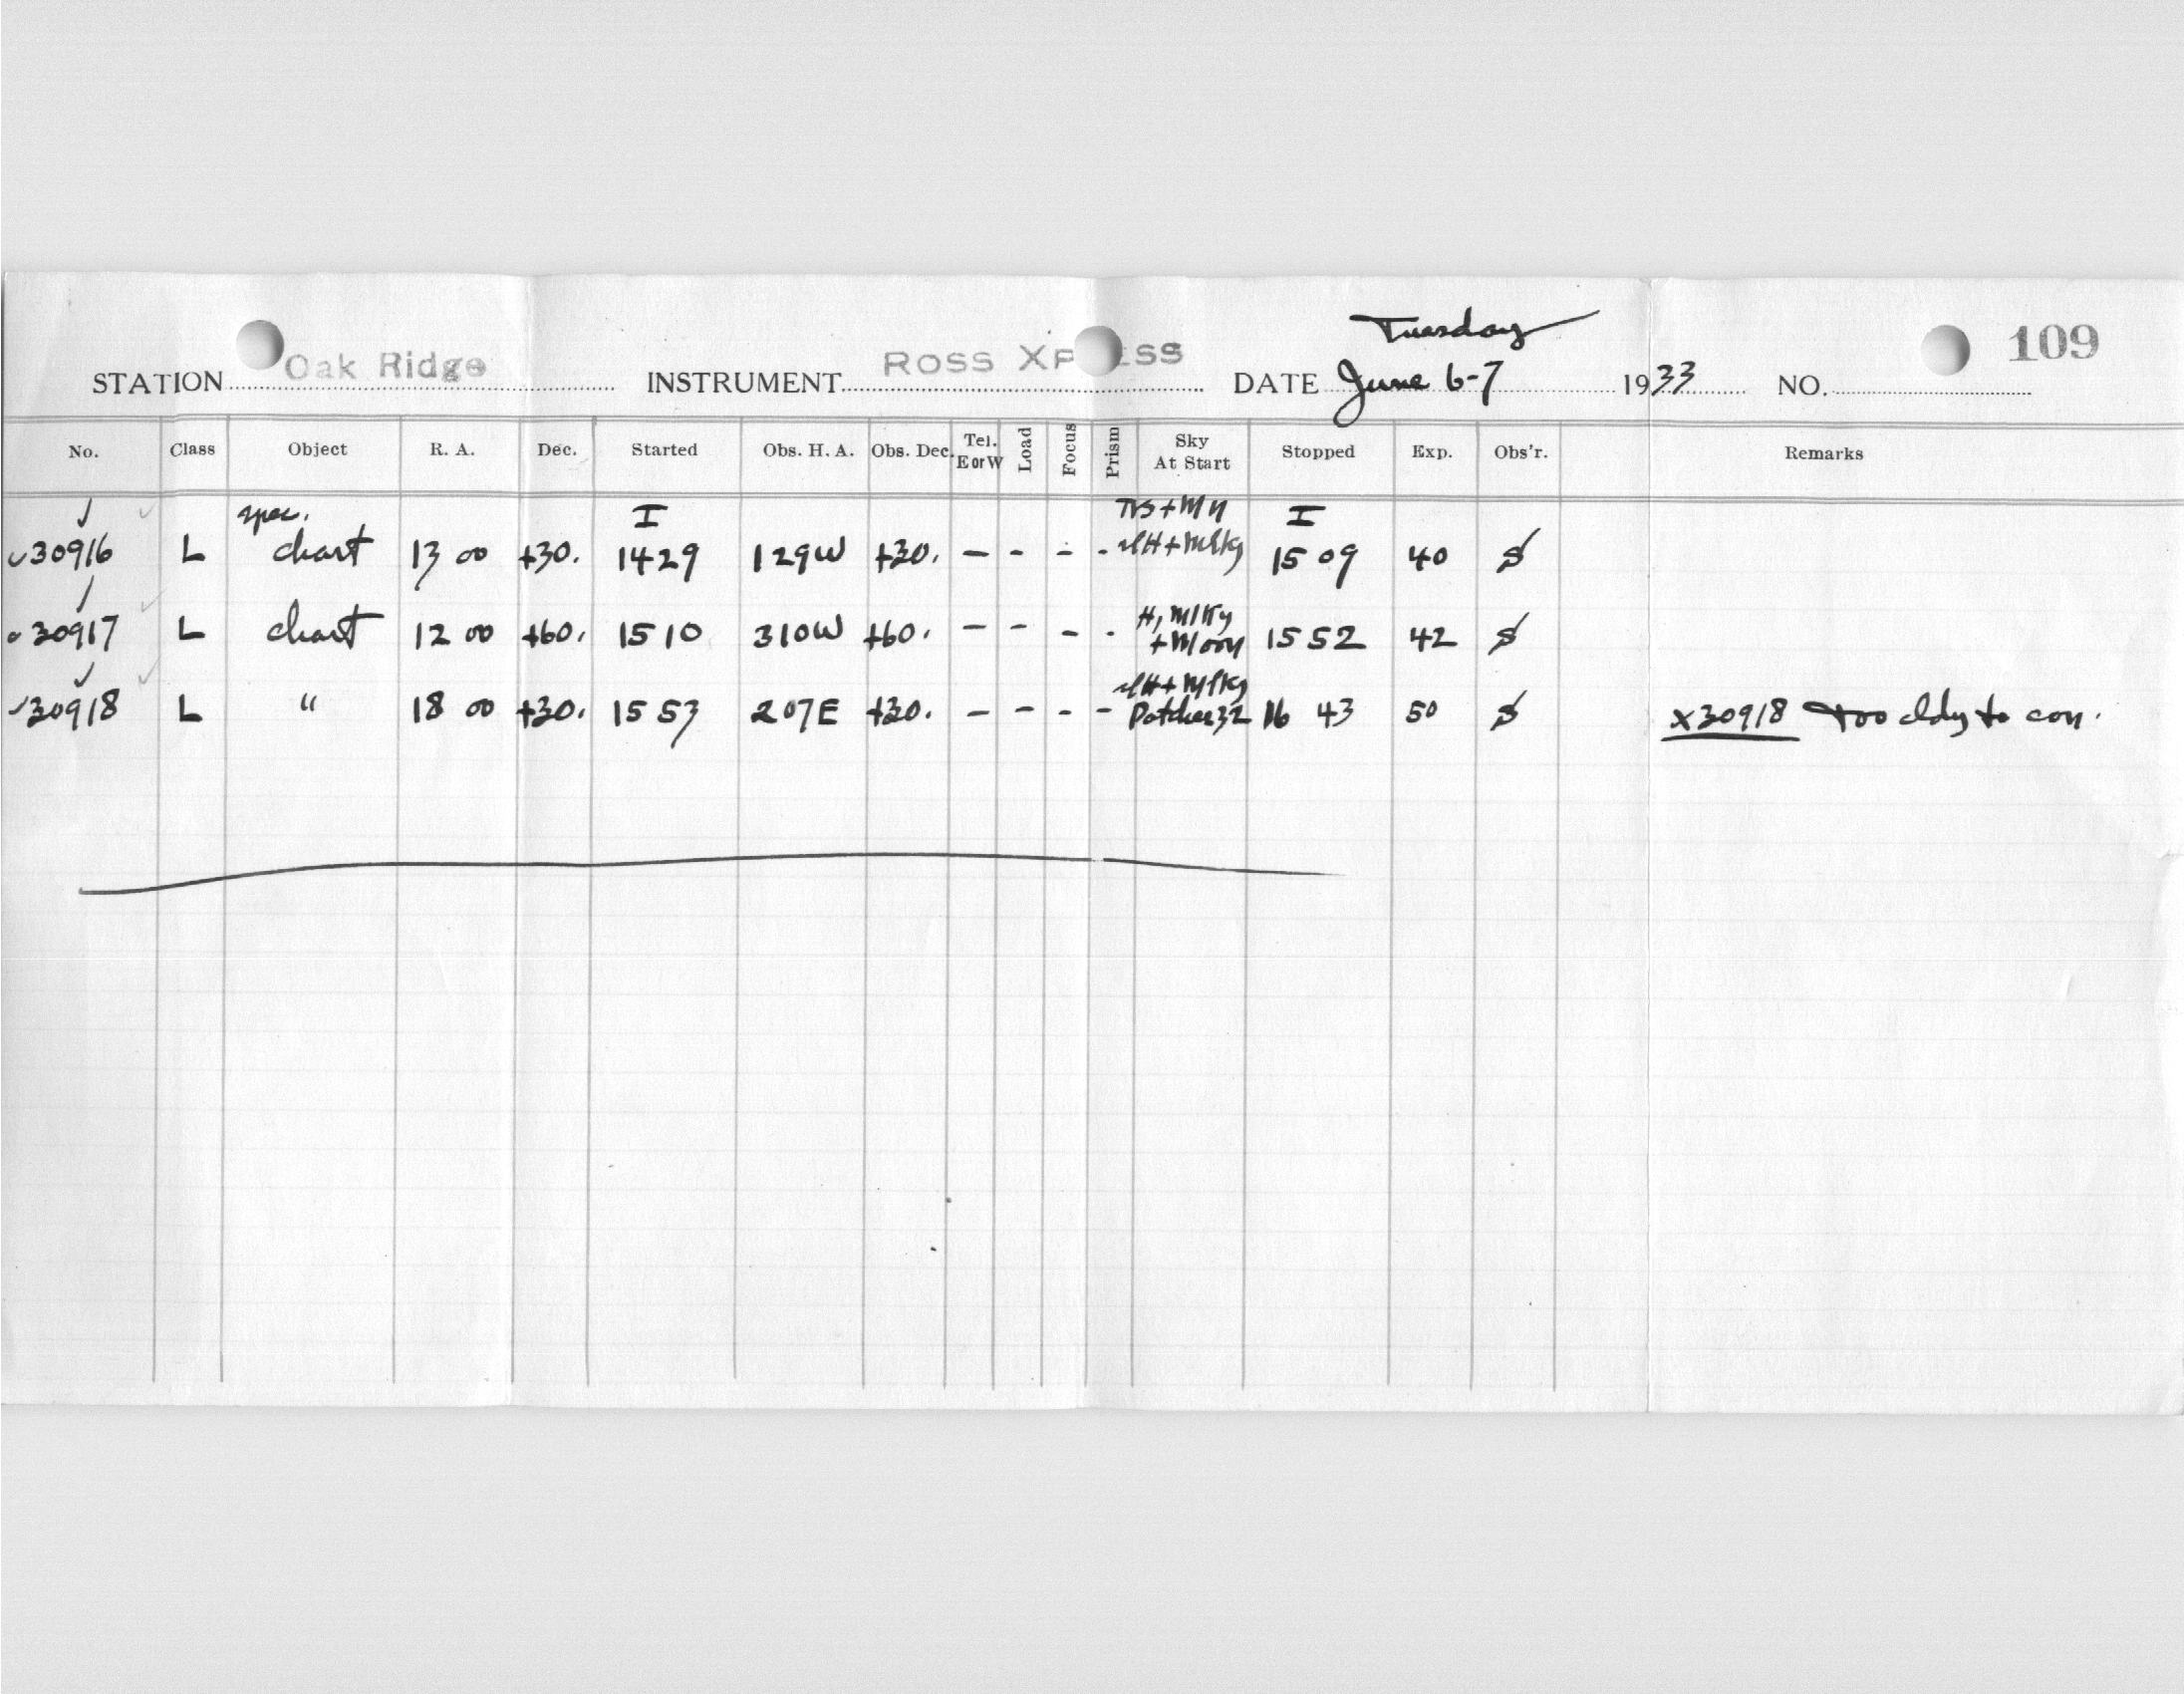 Tuesday
STATION Oak Ridge INSTRUMENT ROSS XP ESS DATE June 6-7 1933 NO. 109
No. Class Object R. A. Dec. Started Obs. H. A. Obs. Dec. Tel. E or W Load Focus Prism Sky At Start Stopped Exp. Obs'r. Remarks
spec. I I
✓30916 L chart 13 00 +30. 1429 129W +30. – – – – 15 09 40 S
30917 L chart 12 00 +60. 1510 310W +60. – – – - H, Mlky + Moon 1552 42 S
✓30918 L " 18 00 +30. 1553 207E +30. – – – – Patches 32 16 43 50 S x30918 too cldy to con.